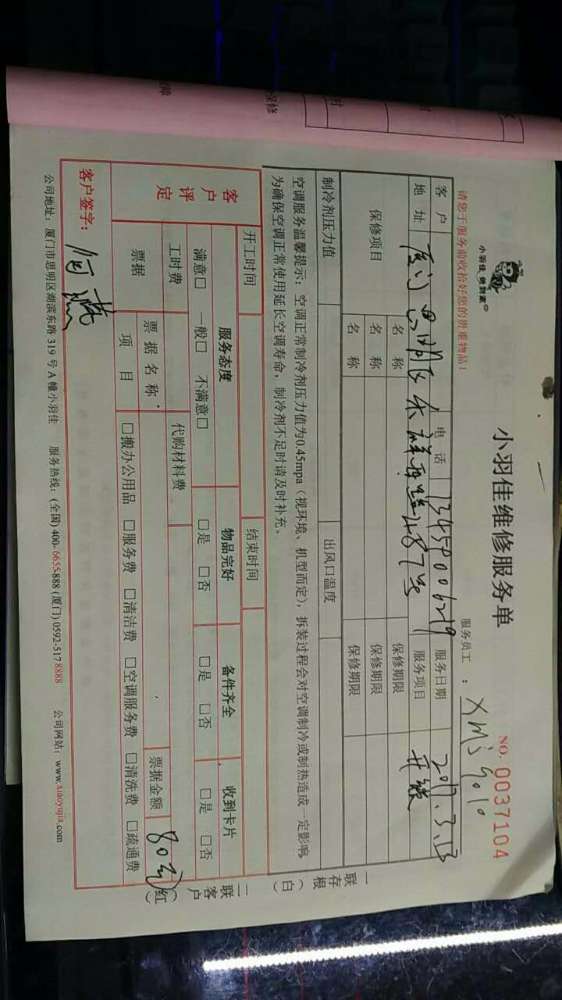 小羽佳维修服务单
小羽佳 做到家
NO. 0037104
请您于服务前收拾好您的贵重物品!
服务员工:
客户 电话 13450006219 服务日期 2017.3.13
地址 服务项目
保修项目 名称 保修期限
名称 保修期限
名称 保修期限
制冷剂压力值 出风口温度
空调服务温馨提示:空调正常制冷剂压力值为0.45mpa(视环境、机型而定),拆装过程会对空调制冷或制热造成一定影响,
为确保空调正常使用延长空调寿命,制冷剂不足时请及时补充。
开工时间 结束时间
客户评定 服务态度 物品完好 备件齐全 收到卡片
满意□ 一般□ 不满意□ □是 □否 □是 □否 □是 □否
工时费 代购材料费 票据金额 80元
票据 票据名称
项目 □搬办公用品 □服务费 □清洁费 □空调服务费 □清洗费 □疏通费
客户签字:
公司地址:厦门市思明区湖滨东路 319 号 A 幢小羽佳 服务热线:(全国) 400-6655-888 (厦门) 0592-517 8888 公司网站:www.xiaoyujia.com
一联存根(白)
二联客户(红)